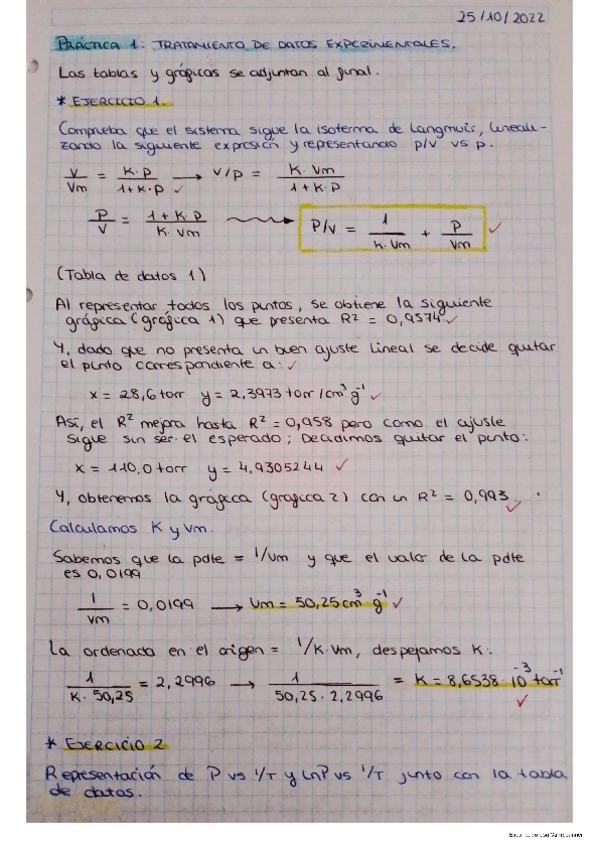 25/10/2022
PRÁCTICA 1: TRATAMIENTO DE DATOS EXPERIMENTALES.
Las tablas y gráficas se adjuntan al final.
* EJERCICIO 1.
Comprueba que el sistema sigue la isoterma de Langmuir, lineali-
zando la siguiente expresión y representando p/v vs p.
V/Vm = K·P/1+K·P → V/P = K·Vm/1+K·P
P/V = 1+K·P/K·Vm → P/V = 1/K·Vm + P/Vm
(Tabla de datos 1)
Al representar todos los puntos, se obtiene la siguiente
gráfica (gráfica 1) que presenta R² = 0,9574
Y, dado que no presenta un buen ajuste lineal se decide quitar
el punto correspondiente a:
x = 28,6 torr y = 2,3973 torr/cm³ g⁻¹
Así, el R² mejora hasta R² = 0,958 pero como el ajuste
sigue sin ser el esperado; Decidimos quitar el punto:
x = 110,0 torr y = 4,9305244
Y, obtenemos la gráfica (grafica 2) con un R² = 0,993.
Calculamos K y Vm.
Sabemos que la pdte = 1/Vm y que el valor de la pdte
es 0,0199
1/Vm = 0,0199 → Vm = 50,25 cm³ g⁻¹
La ordenada en el origen = 1/K·Vm, despejamos K:
1/K·50,25 = 2,2996 → 1/50,25·2,2996 = K = 8,6538·10⁻³ torr⁻¹
* EJERCICIO 2
Representación de P vs 1/T y LnP vs 1/T junto con la tabla
de datos.